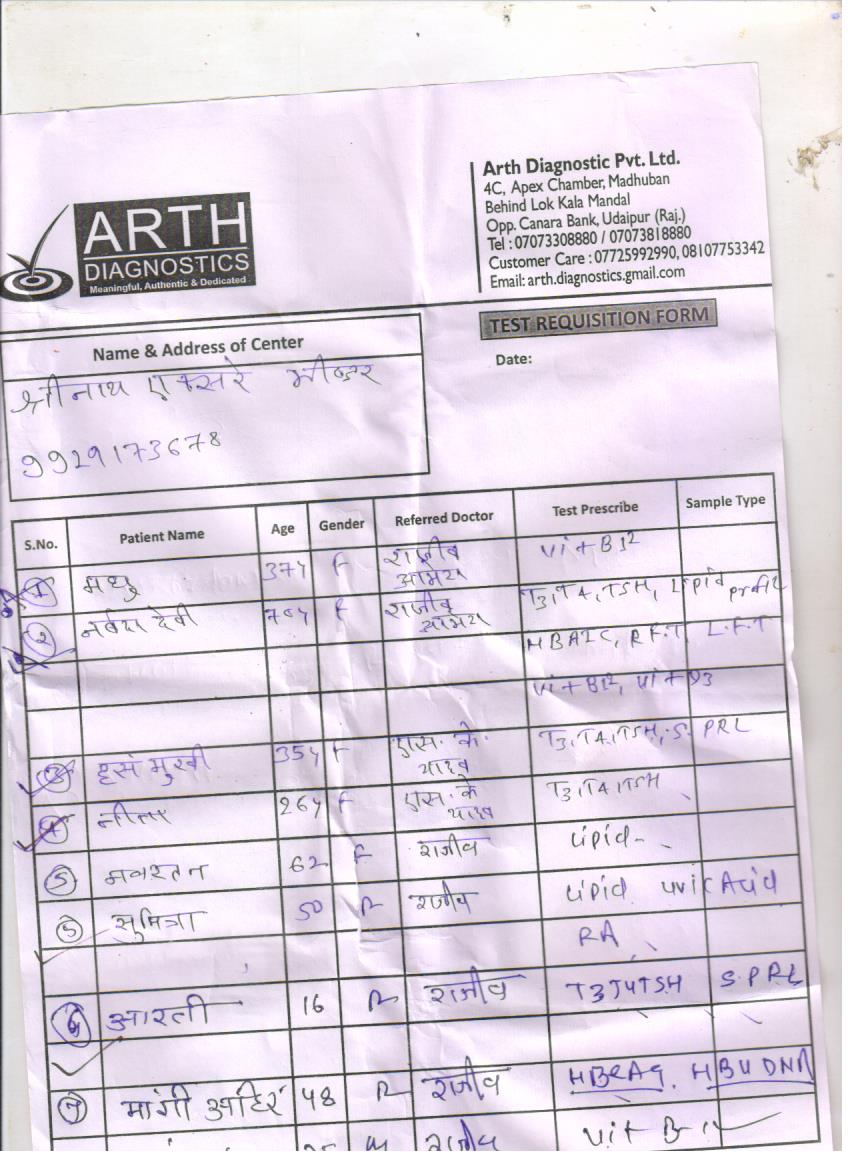 ARTH
DIAGNOSTICS
Meaningful, Authentic & Dedicated
Arth Diagnostic Pvt. Ltd.
4C, Apex Chamber, Madhuban
Behind Lok Kala Mandal
Opp. Canara Bank, Udaipur (Raj.)
Tel : 07073308880 / 07073818880
Customer Care : 07725992990, 08107753342
Email: arth.diagnostics.gmail.com
TEST REQUISITION FORM
Date:
Name & Address of Center
श्रीनाथ एक्सरे भीण्डर
9929173678
S.No. Patient Name Age Gender Referred Doctor Test Prescribe Sample Type
1 मधु 37y F राजीव Vit B12
2 नर्बदा देवी F राजीव T3, T4, TSH, Lipid profile
HBA1C, R.F.T, L.F.T
Vit B12, Vit D3
3 हसंमुखी 35y F एस. के. यादव T3, T4, TSH, S. PRL
4 26y F एस. के यादव T3, T4, TSH
5 नवरतन 62 F राजीव Lipid
5 सुमित्रा 50 राजीव Lipid uric Acid
RA
6 आरती 16 राजीव T3 T4 TSH S.PRL
7 मांगी अहिर 48 राजीव HBeAg, HBV DNA
M राजीव Vit B